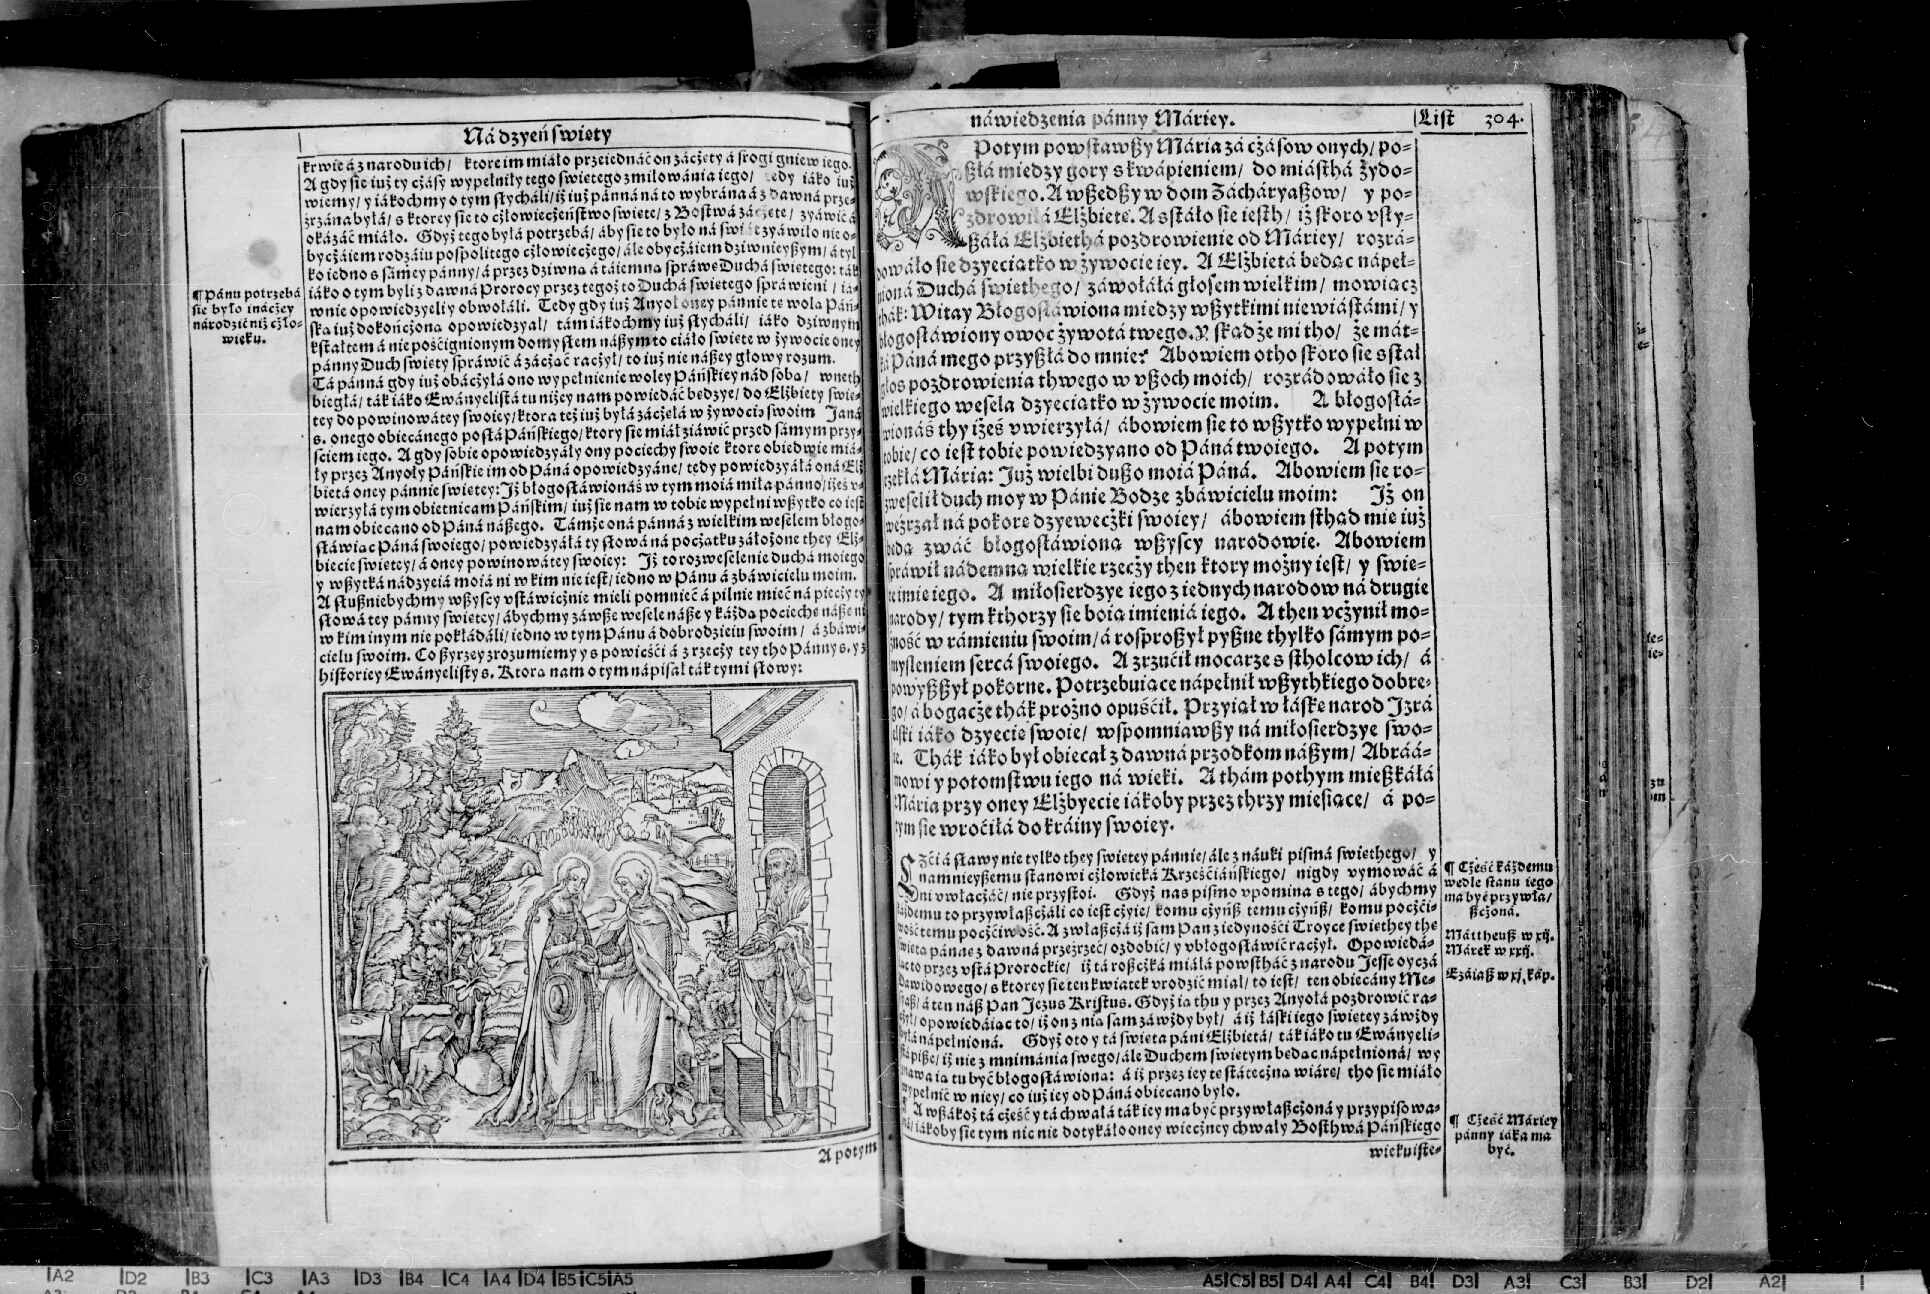 Ná dzyeń swięty
krwie á z narodu ich/ ktore im miáło przeiednáć on zácżęty á srogi gniew iego.
A gdy sie iuż ty cżásy wypełniły tego swiętego zmiłowánia iego/ tedy iáko iuż
wiemy/ y iákochmy o tym słycháli/ iż iuż pánná ná to wybrána á z dawná prze-
źrzána byłá/ s ktorey sie to cżłowiecżeństwo swięte/ z Bostwá zácżęte/ zyáwić á
okázáć miáło. Gdyż tego byłá potrzebá/ áby sie to było ná swiát zyáwiło nie o-
bycżáiem rodzáiu pospolitego cżłowiecżego/ ále obycżáiem dziwnieyßym/ á tyl
ko iedno s sámey pánny/ á przez dziwną á táiemną spráwę Duchá swiętego: ták
iáko o tym byli z dawná Prorocy przez tegoż to Duchá swiętego spráwieni/ iá-
wnie opowiedzyeli y obwołáli. Tedy gdy iuż Anyoł oney pánnie tę wolą Páń-
ską iuż dokońcżoną opowiedzyał/ tám iákochmy iuż słycháli/ iáko dziwnym
kstałtem á nie poścignionym domysłem náßym to ciáło swięte w żywocie oney
pánny Duch swięty spráwić á zácżąć racżył/ to iuż nie náßey głowy rozum.
Tá pánná gdy iuż obacżyłá ono wypełnienie woley Páńskiey nád sobą/ wneth
biegłá/ ták iáko Ewányelistá tu niżey nam powiedáć będzye/ do Elżbiety swię-
tey do powinowátey swoiey/ ktora też iuż byłá zácżęłá w żywocie swoim Janá
s. onego obiecánego posłá Páńskiego/ ktory sie miał ziáwić przed sámym przy-
sciem iego. A gdy sobie opowiedzyáły ony pociechy swoie ktore obiedwie miá-
ły przez Anyoły Páńskie im od Páná opowiedzyáne/ tedy powiedzyáłá oná Elż
bietá oney pánnie swiętey: Iż błogosłáwionáś w tym moiá miła pánno/ iżeś v-
wierzyłá tym obietnicam Páńskim/ iuż sie nam w tobie wypełni wßytko co iest
nam obiecano od Páná náßego. Támże oná pánná z wielkim weselem błogo-
słáwiąc Páná swoiego/ powiedzyáłá ty słowá ná pocżątku záłożone they Elż-
biecie swiętey/ á oney powinowátey swoiey: Iż to rozweselenie duchá moiego
y wßytká nádzyeiá moiá ni w kim nie iest/ iedno w Pánu á zbáwicielu moim.
A słußniebychmy wßyscy vstáwicżnie mieli pomnieć á pilnie mieć ná piecży ty
słowá tey pánny swiętey/ ábychmy záwße wesele náße y káżdą pociechę náßę ni
w kim inym nie pokłádáli/ iedno w tym Pánu á dobrodzieiu swoim/ á zbáwi-
cielu swoim. Co ßyrzey zrozumiemy y s powieści á z rzecży tey tho Pánny s. y z
historiey Ewányelisty s. Ktora nam o tym nápisał ták tymi słowy:
¶ Pánu potrzebá
sie było inácżey
národzić niż cżło-
wieku.
A potym
náwiedzenia pánny Máriey.
List 304.
Potym powstawßy Mária zá cżásow onych/ po-
ßłá miedzy gory s kwápieniem/ do miásthá żydo-
wskiego. A wßedßy w dom Zácháryaßow/ y po-
zdrowiłá Elżbietę. A sstáło sie iesth/ iż skoro vsły-
ßáłá Elżbiethá pozdrowienie od Máriey/ rozrá-
dowáło sie dzyeciątko w żywocie iey. A Elżbietá będąc nápeł-
nioná Duchá swiethego/ záwołáłá głosem wielkim/ mowiącz
thák: Witay Błogosłáwiona miedzy wßytkimi niewiástámi/ y
błogosłáwiony owoc żywotá twego. Y skądże mi tho/ że mát-
ká Páná mego przyßłá do mnie? Abowiem otho skoro sie sstał
głos pozdrowienia thwego w vßoch moich/ rozrádowáło sie z
wielkiego wesela dzyeciątko w żywocie moim. A błogosłá-
wionáś thy iżeś vwierzyłá/ ábowiem sie to wßytko wypełni w
tobie/ co iest tobie powiedzyano od Páná twoiego. A potym
rzekłá Mária: Już wielbi dußo moiá Páná. Abowiem sie ro-
zweselił duch moy w Pánie Bodze zbáwicielu moim: Iż on
weźrzał ná pokorę dzyewecżki swoiey/ ábowiem sthąd mię iuż
będą zwáć błogosłáwioną wßyscy narodowie. Abowiem
spráwił nádemną wielkie rzecży then ktory możny iest/ y swię-
te imię iego. A miłosierdzye iego z iednych narodow ná drugie
narody/ tym kthorzy sie boią imieniá iego. A then vcżynił mo-
żność w rámieniu swoim/ á rosproßył pyßne thylko sámym po-
mysleniem sercá swoiego. A zrzućił mocarze s stholcow ich/ á
powyßßył pokorne. Potrzebuiące nápełnił wßythkiego dobre-
go/ á bogacże thák prożno opuścił. Przyiął w łáskę narod Izrá
elski iáko dzyecię swoie/ wspomniawßy ná miłosierdzye swo-
ie. Thák iáko był obiecał z dawná przodkom náßym/ Abráá-
mowi y potomstwu iego ná wieki. A thám pothym mießkáłá
Mária przy oney Elżbyecie iákoby przez thrzy miesiące/ á po-
tym sie wroćiłá do kráiny swoiey.
Cżći á sławy nie tylko they swiętey pánnie/ ále z náuki pismá swiethego/ y
namnieyßemu stanowi cżłowieká Krześciáńskiego/ nigdy vymowáć á
ni vwłacżáć/ nie przystoi. Gdyż nas pismo vpomina s tego/ ábychmy
káżdemu to przywłaßcżáli co iest cżyie/ komu cżynß temu cżynß/ komu pocżći-
wość temu pocżćiwość. A zwłaßcżá iż sam Pan z iedyności Troyce swiethey thę
swiętą pánnę z dawná przeźrzeć/ ozdobić/ y vbłogosłáwić racżył. Opowiedá-
iąc to przez vstá Prorockie/ iż tá roßcżká miáłá powstháć z narodu Jesse oycżá
Dawidowego/ s ktorey sie ten kwiatek vrodzić miał/ to iest/ ten obiecány Me-
syaß/ á ten náß Pan Jezus Kristus. Gdyż ią thu y przez Anyołá pozdrowić ra-
cżył/ opowiedáiąc to/ iż on z nią sam záwżdy był/ á iż łáski iego swiętey záwżdy
byłá nápełnioná. Gdyż oto y tá swięta páni Elżbietá/ ták iáko tu Ewányeli-
stá piße/ iż nie z mnimánia swego/ ále Duchem swiętym będąc nápełnioná/ wy
znawa ią tu być błogosłáwioną: á iż przez iey tę státecżną wiárę/ tho sie miáło
wypełnić w niey/ co iuż iey od Páná obiecano było.
A wßákoż tá cżeść y tá chwałá ták iey ma być przywłaßcżoná y przypisowa-
ná/ iákoby sie tym nic nie dotykáło oney wiecżney chwały Bosthwá Páńskiego
wiekuiste-
¶ Cżeść káżdemu
wedle stanu iego
ma być przywła/
ßcżoná.
Mátteuß w xij.
Márek w xxij.
Ezáiaß w xj. káp.
¶ Cżeść Máriey
pánny iáka ma
być.